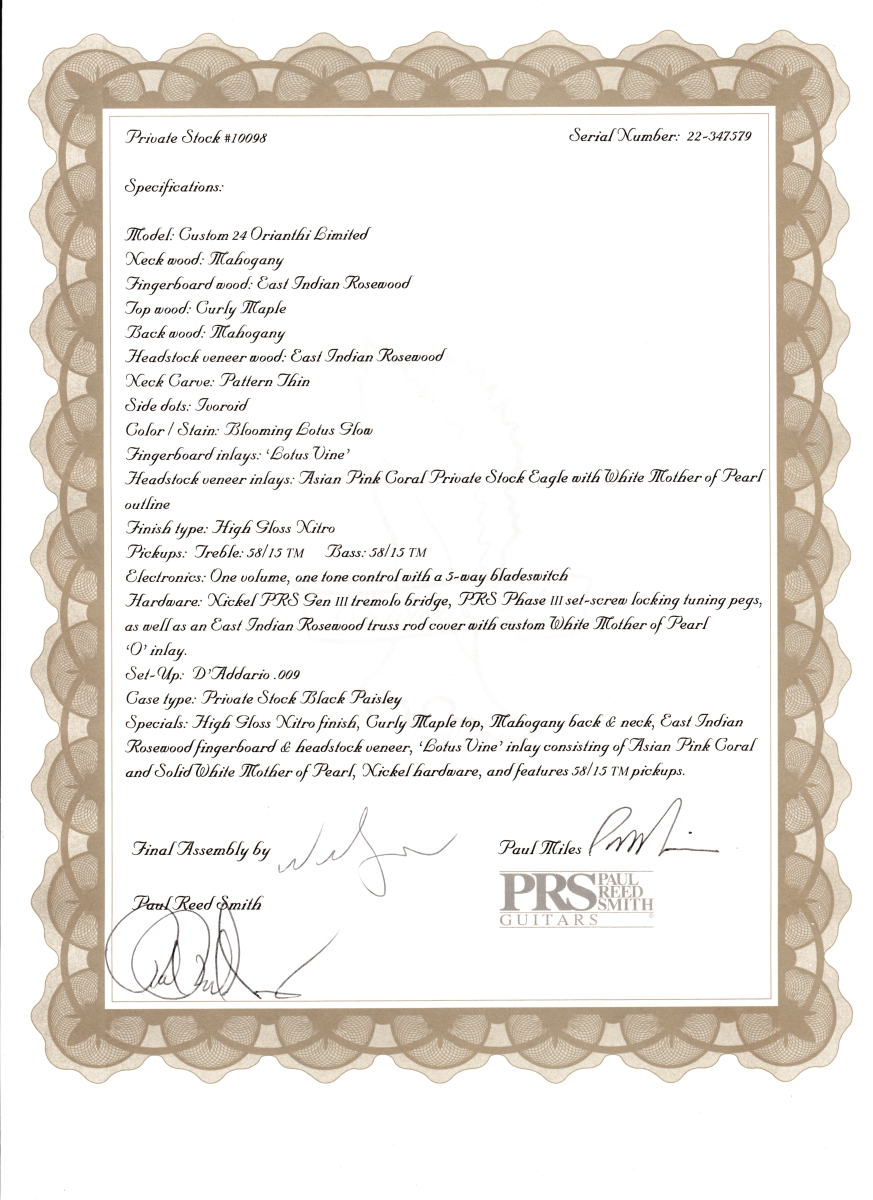 Private Stock #10098 Serial Number: 22-347579
Specifications:
Model: Custom 24 Orianthi Limited
Neck wood: Mahogany
Fingerboard wood: East Indian Rosewood
Top wood: Curly Maple
Back wood: Mahogany
Headstock veneer wood: East Indian Rosewood
Neck Carve: Pattern Thin
Side dots: Ivoroid
Color / Stain: Blooming Lotus Glow
Fingerboard inlays: ‘Lotus Vine’
Headstock veneer inlays: Asian Pink Coral Private Stock Eagle with White Mother of Pearl
outline
Finish type: High Gloss Nitro
Pickups: Treble: 58/15 TM Bass: 58/15 TM
Electronics: One volume, one tone control with a 5-way bladeswitch
Hardware: Nickel PRS Gen III tremolo bridge, PRS Phase III set-screw locking tuning pegs,
as well as an East Indian Rosewood truss rod cover with custom White Mother of Pearl
‘O’ inlay.
Set-Up: D’Addario .009
Case type: Private Stock Black Paisley
Specials: High Gloss Nitro finish, Curly Maple top, Mahogany back & neck, East Indian
Rosewood fingerboard & headstock veneer, ‘Lotus Vine’ inlay consisting of Asian Pink Coral
and Solid White Mother of Pearl, Nickel hardware, and features 58/15 TM pickups.
Final Assembly by
Paul Miles
Paul Reed Smith
PRS PAUL
REED
SMITH
GUITARS ®